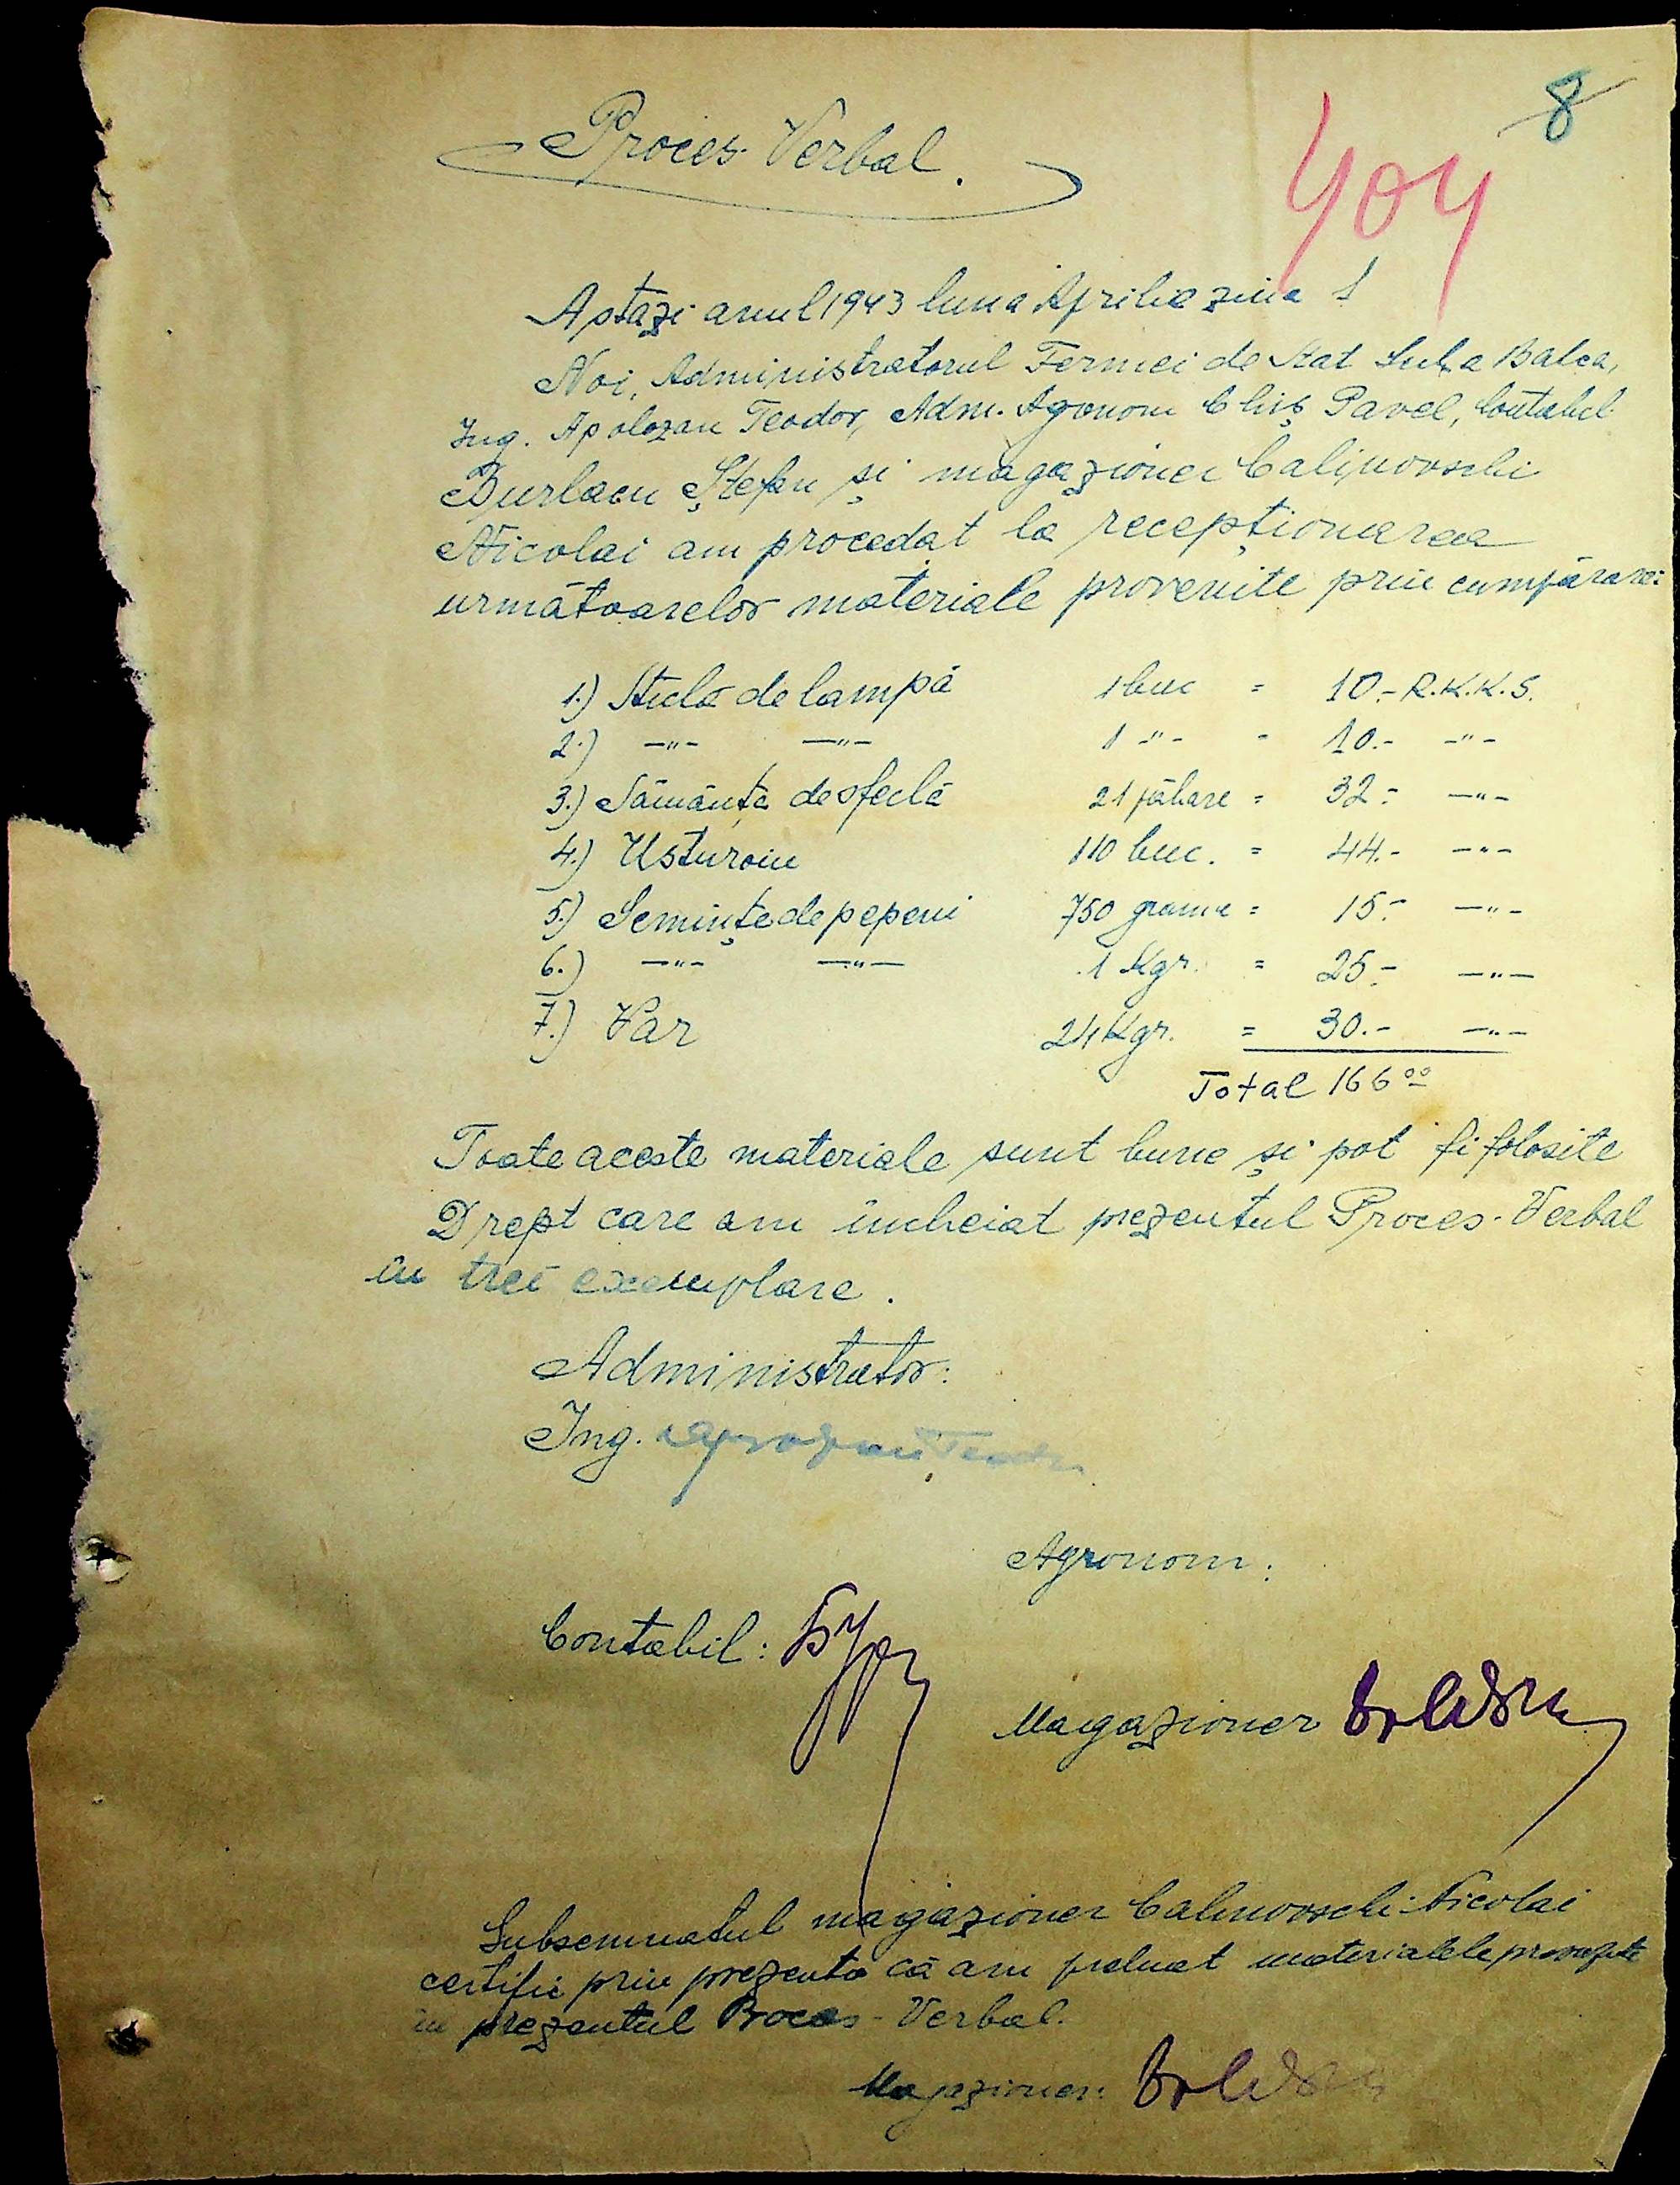 8
404
Proces-Verbal.
Astăzi anul 1943 luna Aprilie ziua 1
Noi, Administratorul Fermei de Stat Suha Balca,
Ing. Apolozan Teodor, Adm. Agronom Chiș Pavel, Contabil
Burlacu Ștefan și magazioner Calinovschi
Nicolai am procedat la recepționarea
următoarelor materiale provenite prin cumpărare:
1.) Sticlă de lampă 1 buc = 10.- R.K.K.S.
2.) -"- -"- 1 -"- - 10.- -"-
3.) Sămânță de sfeclă 21 păhare = 32.- -"-
4.) Usturoiu 110 buc. = 44.- -"-
5.) Semințe de pepeni 750 grame = 15.- -"-
6.) -"- -"- 1 Kgr. = 25.- -"-
7.) Var 24 Kgr. = 30.- -"-
Total 166 00
Toate aceste materiale sunt bune și pot fi folosite
Drept care am încheiat prezentul Proces-Verbal
în trei exemplare.
Administrator:
Ing.
Agronom:
Contabil:
Magazioner
Subsemnatul magazioner Calinovschi Nicolai
certific prin prezenta că am preluat materialele
în prezentul Proces-Verbal.
Magazioner: